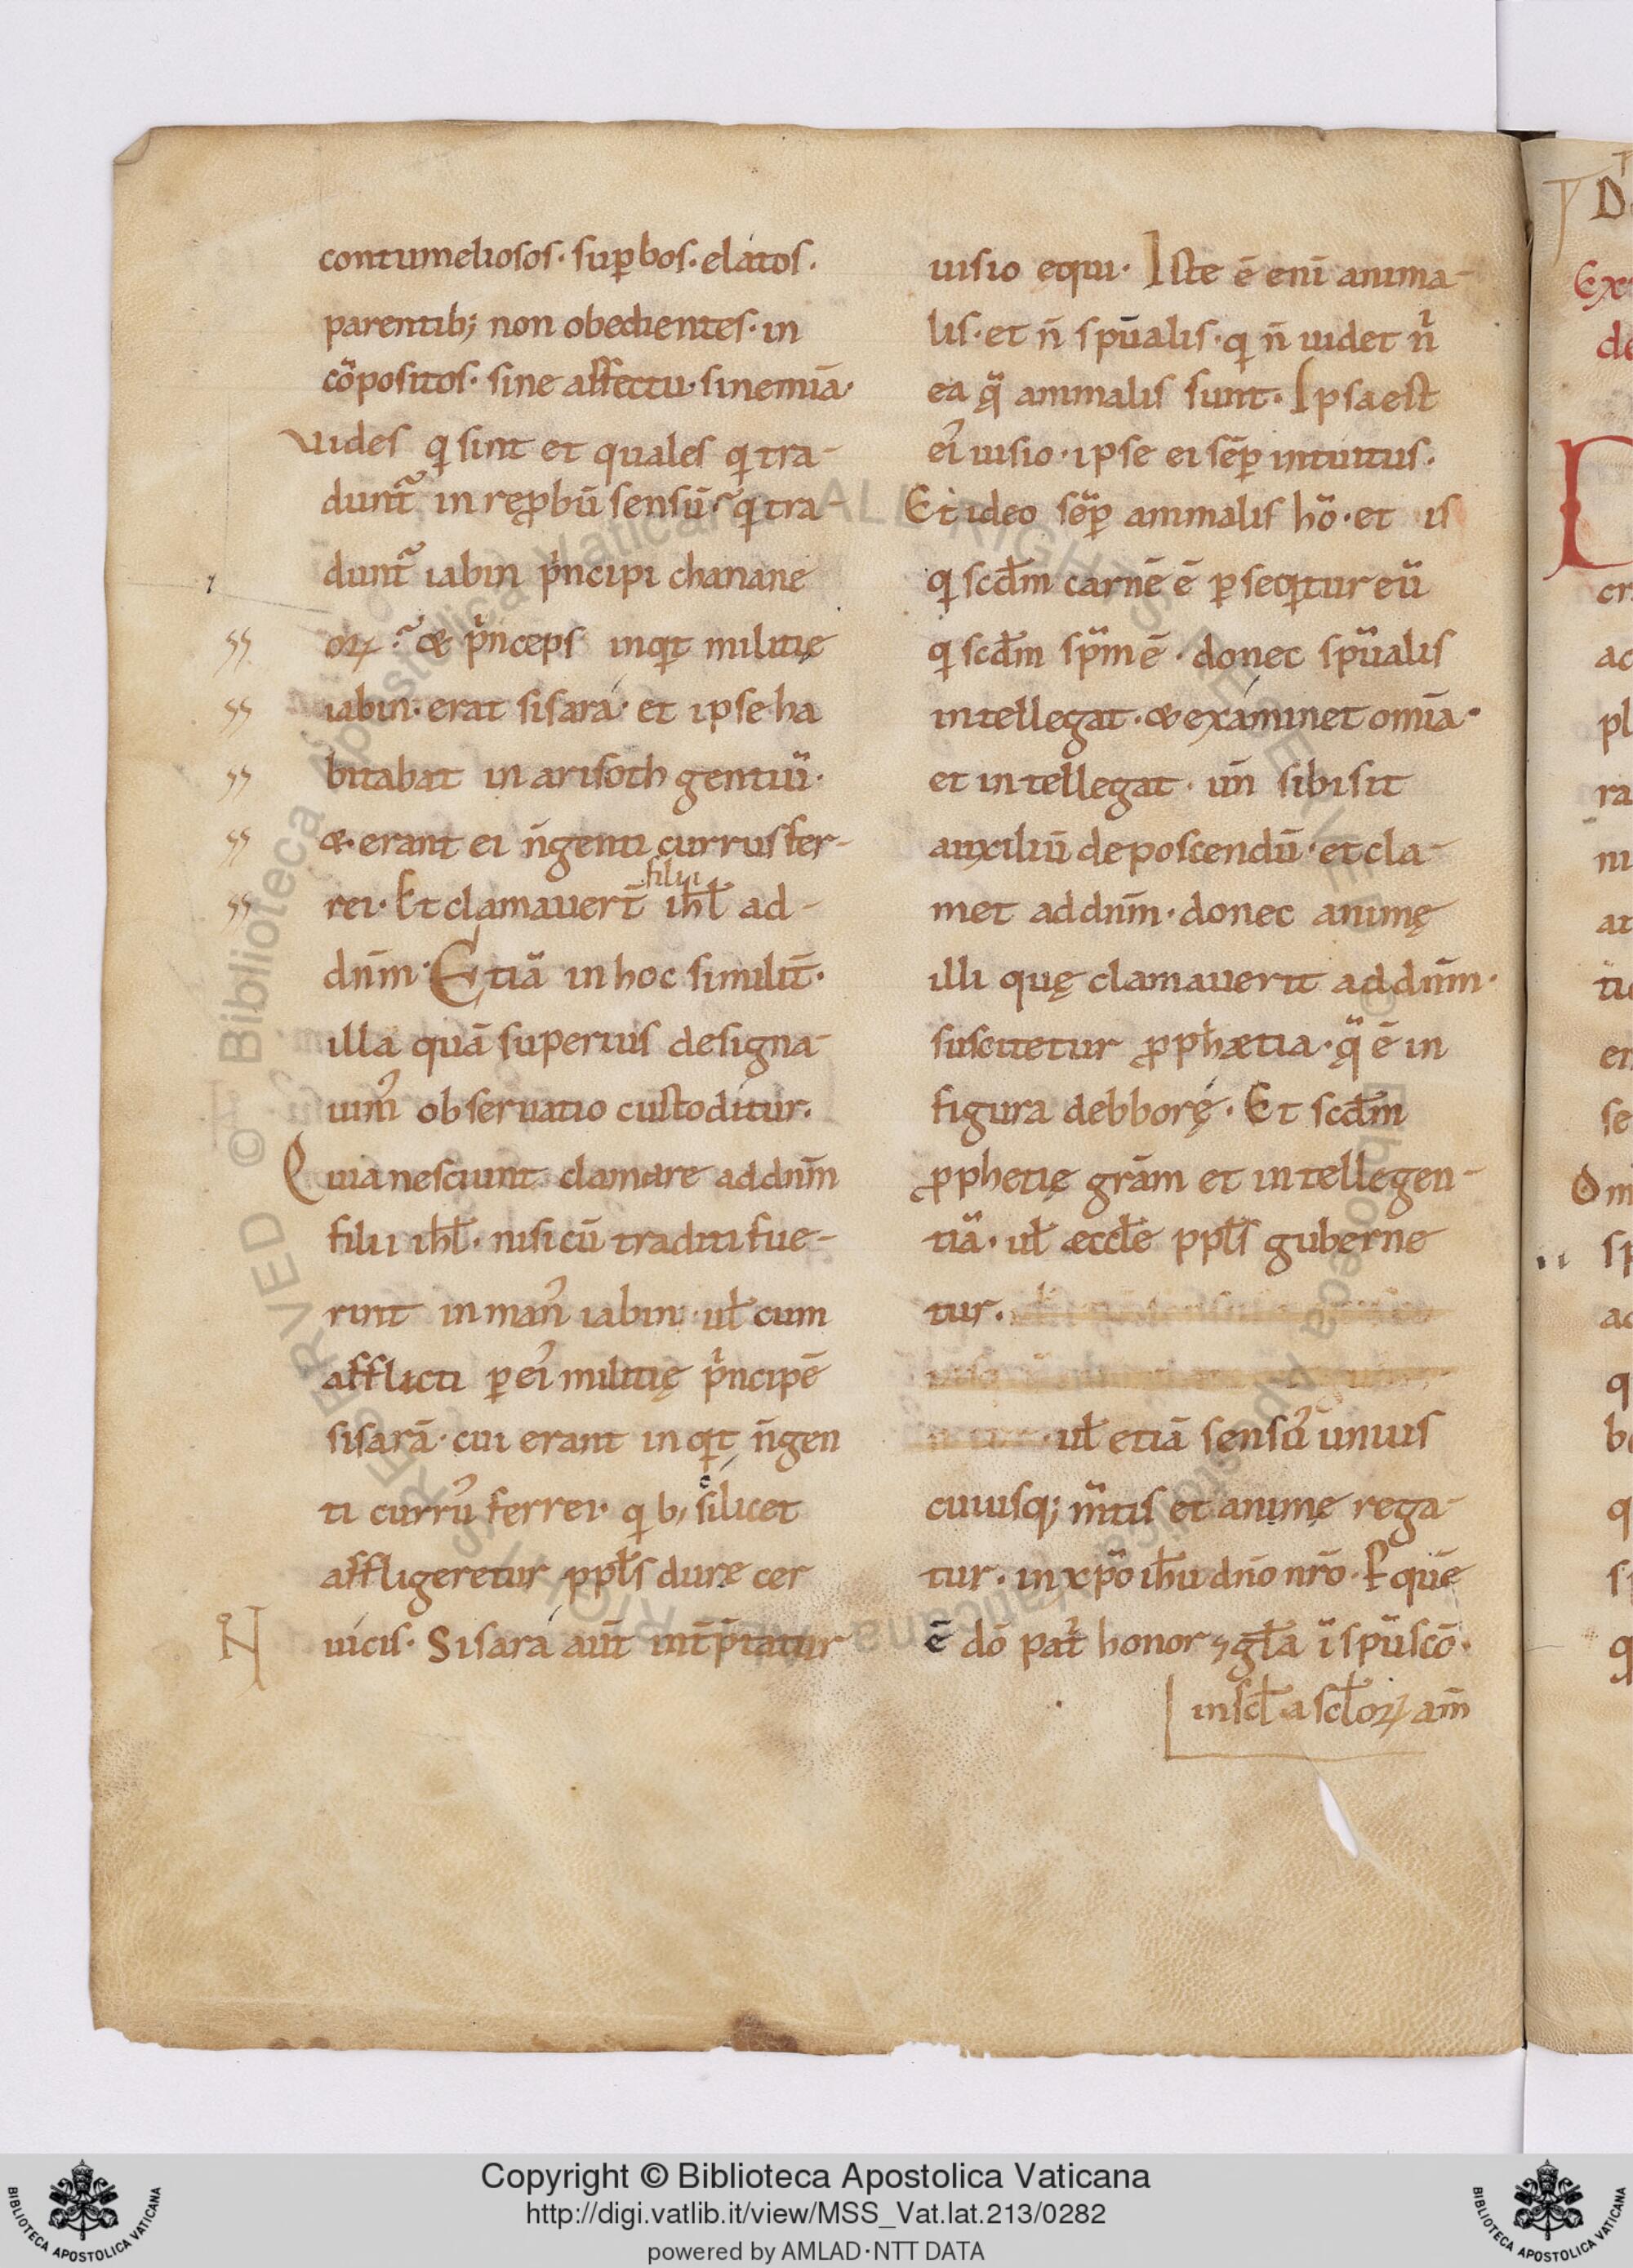 contumeliosos. sup̱bos. elatos.
parentib; non obedientes. in
cōpositos. sine affectu. sine mīa.
Vides q sint et quales q tra-
dunt᷒ in rep̱bū sensū. q tra-
dunt᷒ iabin pͥncipi chanane
oꝝ. & pͥnceps inqt militię
iabin. erat sisara. et ipse ha
bitabat in arisoth gentiū.
&. erant ei n̄genti currus fer-
rei. Et clamauer̄t filii ihl̄ ad-
dn̄m. Etiā in hoc similit̄.
illa quā superius designa-
uim᷒ obseruatio custoditur.
Quia nesciunt clamare ad dn̄m
filii ihl̄. nisi cū traditi fue-
rint in man᷒ iabin. ul̄ cum
afflicti p̱ ei᷒ militię pͥncipē
sisarā. cui erant inqt n̄gen
ti curr᷒ ferrei. q b; silicet
affligeretur ppl̄s durę cer
uicis. Sisara aūt int̄p̄tatur
uisio equi. Iste ē enī anima-
lis. et n̄ spūalis. q n̄ uidet nͥ
ea q̄ animalis sunt. Ipsa est
ei᷒ uisio. ipse ei sēp̱ intuitus.
Et ideo sēp̱ animalis hō. et is
q scd̄m carnē ē p̱seqtur eū
q scd̄m spm̄ ē. donec spūalis
intellegat. & examinet om̄ia.
et intellegat. un̄ sibi sit
auxiliū deposcendū. et cla-
met ad dn̄m. donec animę
illi quę clamauerit ad dn̄m.
suscitetur ꝓphætia. q̄ ē in
figura debborę. Et scd̄m
ꝓphetię grām et intellegen-
tiā. ul̄ æccl̄e ppl̄s guberne
tur.
ul̄ etiā sens᷒ unius
cuiusq; m̄tis et animę rega-
tur. in xp̄o ihū dn̄o nr̄o. P quē
ē dō pat̄ honor ⁊ gl̄a ī spū scō.
in scl̄a scl̄oꝝ am̄
N
Copyright © Biblioteca Apostolica Vaticana
http://digi.vatlib.it/view/MSS_Vat.lat.213/0282
powered by AMLAD·NTT DATA
BIBLIOTECA APOSTOLICA VATICANA
BIBLIOTECA APOSTOLICA VATICANA